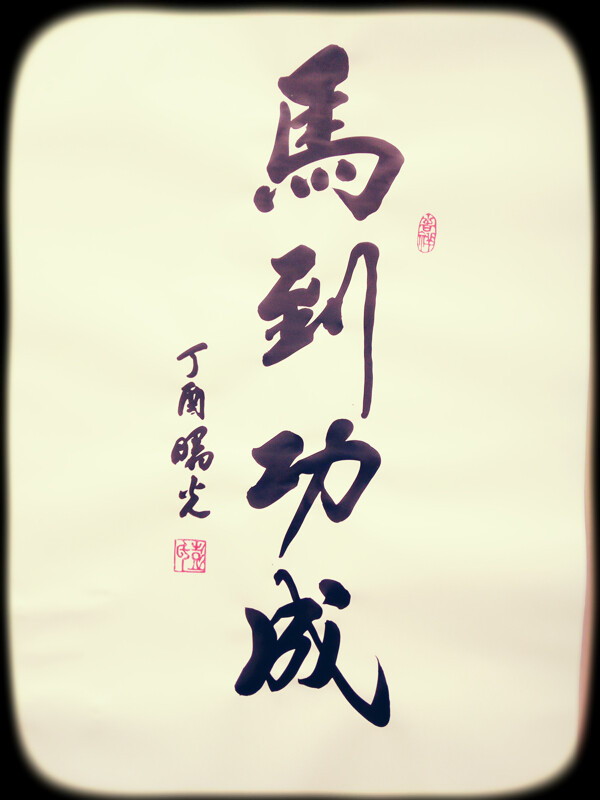 馬到功成
丁酉曙光